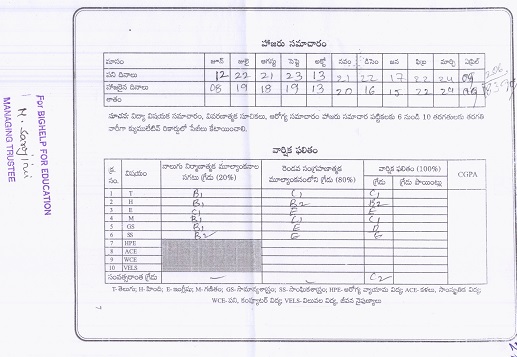 హాజరు సమాచారం
మాసం జూన్ జులై ఆగస్టు సెప్టె అక్టో నవం డిసెం జన ఫిబ్ర మార్చి ఏప్రిల్
పని దినాలు 12 22 21 23 13 21 22 17 22 24 09
హాజరైన దినాలు 08 19 18 19 13 20 16 15 22 24
శాతం
206
సూచన: విద్యా విషయక సమాచారం, వివరణాత్మక సూచికలు, ఆరోగ్య సమాచారం హాజరు సమాచార పట్టికలకు 6 నుండి 10 తరగతులకు తరగతి
వారీగా క్యుములేటివ్ రికార్డులో పేజీలు కేటాయించాలి.
వార్షిక ఫలితం
క్ర. సం. విషయం నాలుగు నిర్మాణాత్మక మూల్యాంకనాల సగటు గ్రేడు (20%) రెండవ సంగ్రహణాత్మక మూల్యాంకనంలోని గ్రేడు (80%) వార్షిక ఫలితం (100%) CGPA
గ్రేడు గ్రేడు పాయింట్లు
1 T B1 C1 C1
2 H B1 B2 B2
3 E C1 E E
4 M B1 C1 C1
5 GS B1 E
6 SS B2 E E
7 HPE
8 ACE
9 WCE
10 VELS
సంవత్సరాంత గ్రేడు C2
T-తెలుగు; H-హింది; E-ఇంగ్లీషు; M-గణితం; GS-సామాన్యశాస్త్రం; SS-సాంఘికశాస్త్రం; HPE-ఆరోగ్య వ్యాయామ విద్య ACE-కళలు, సాంస్కృతిక విద్య;
WCE-పని, కంప్యూటర్ విద్య VELS-విలువల విద్య, జీవన నైపుణ్యాలు
For BIGHELP FOR EDUCATION
MANAGING TRUSTEE